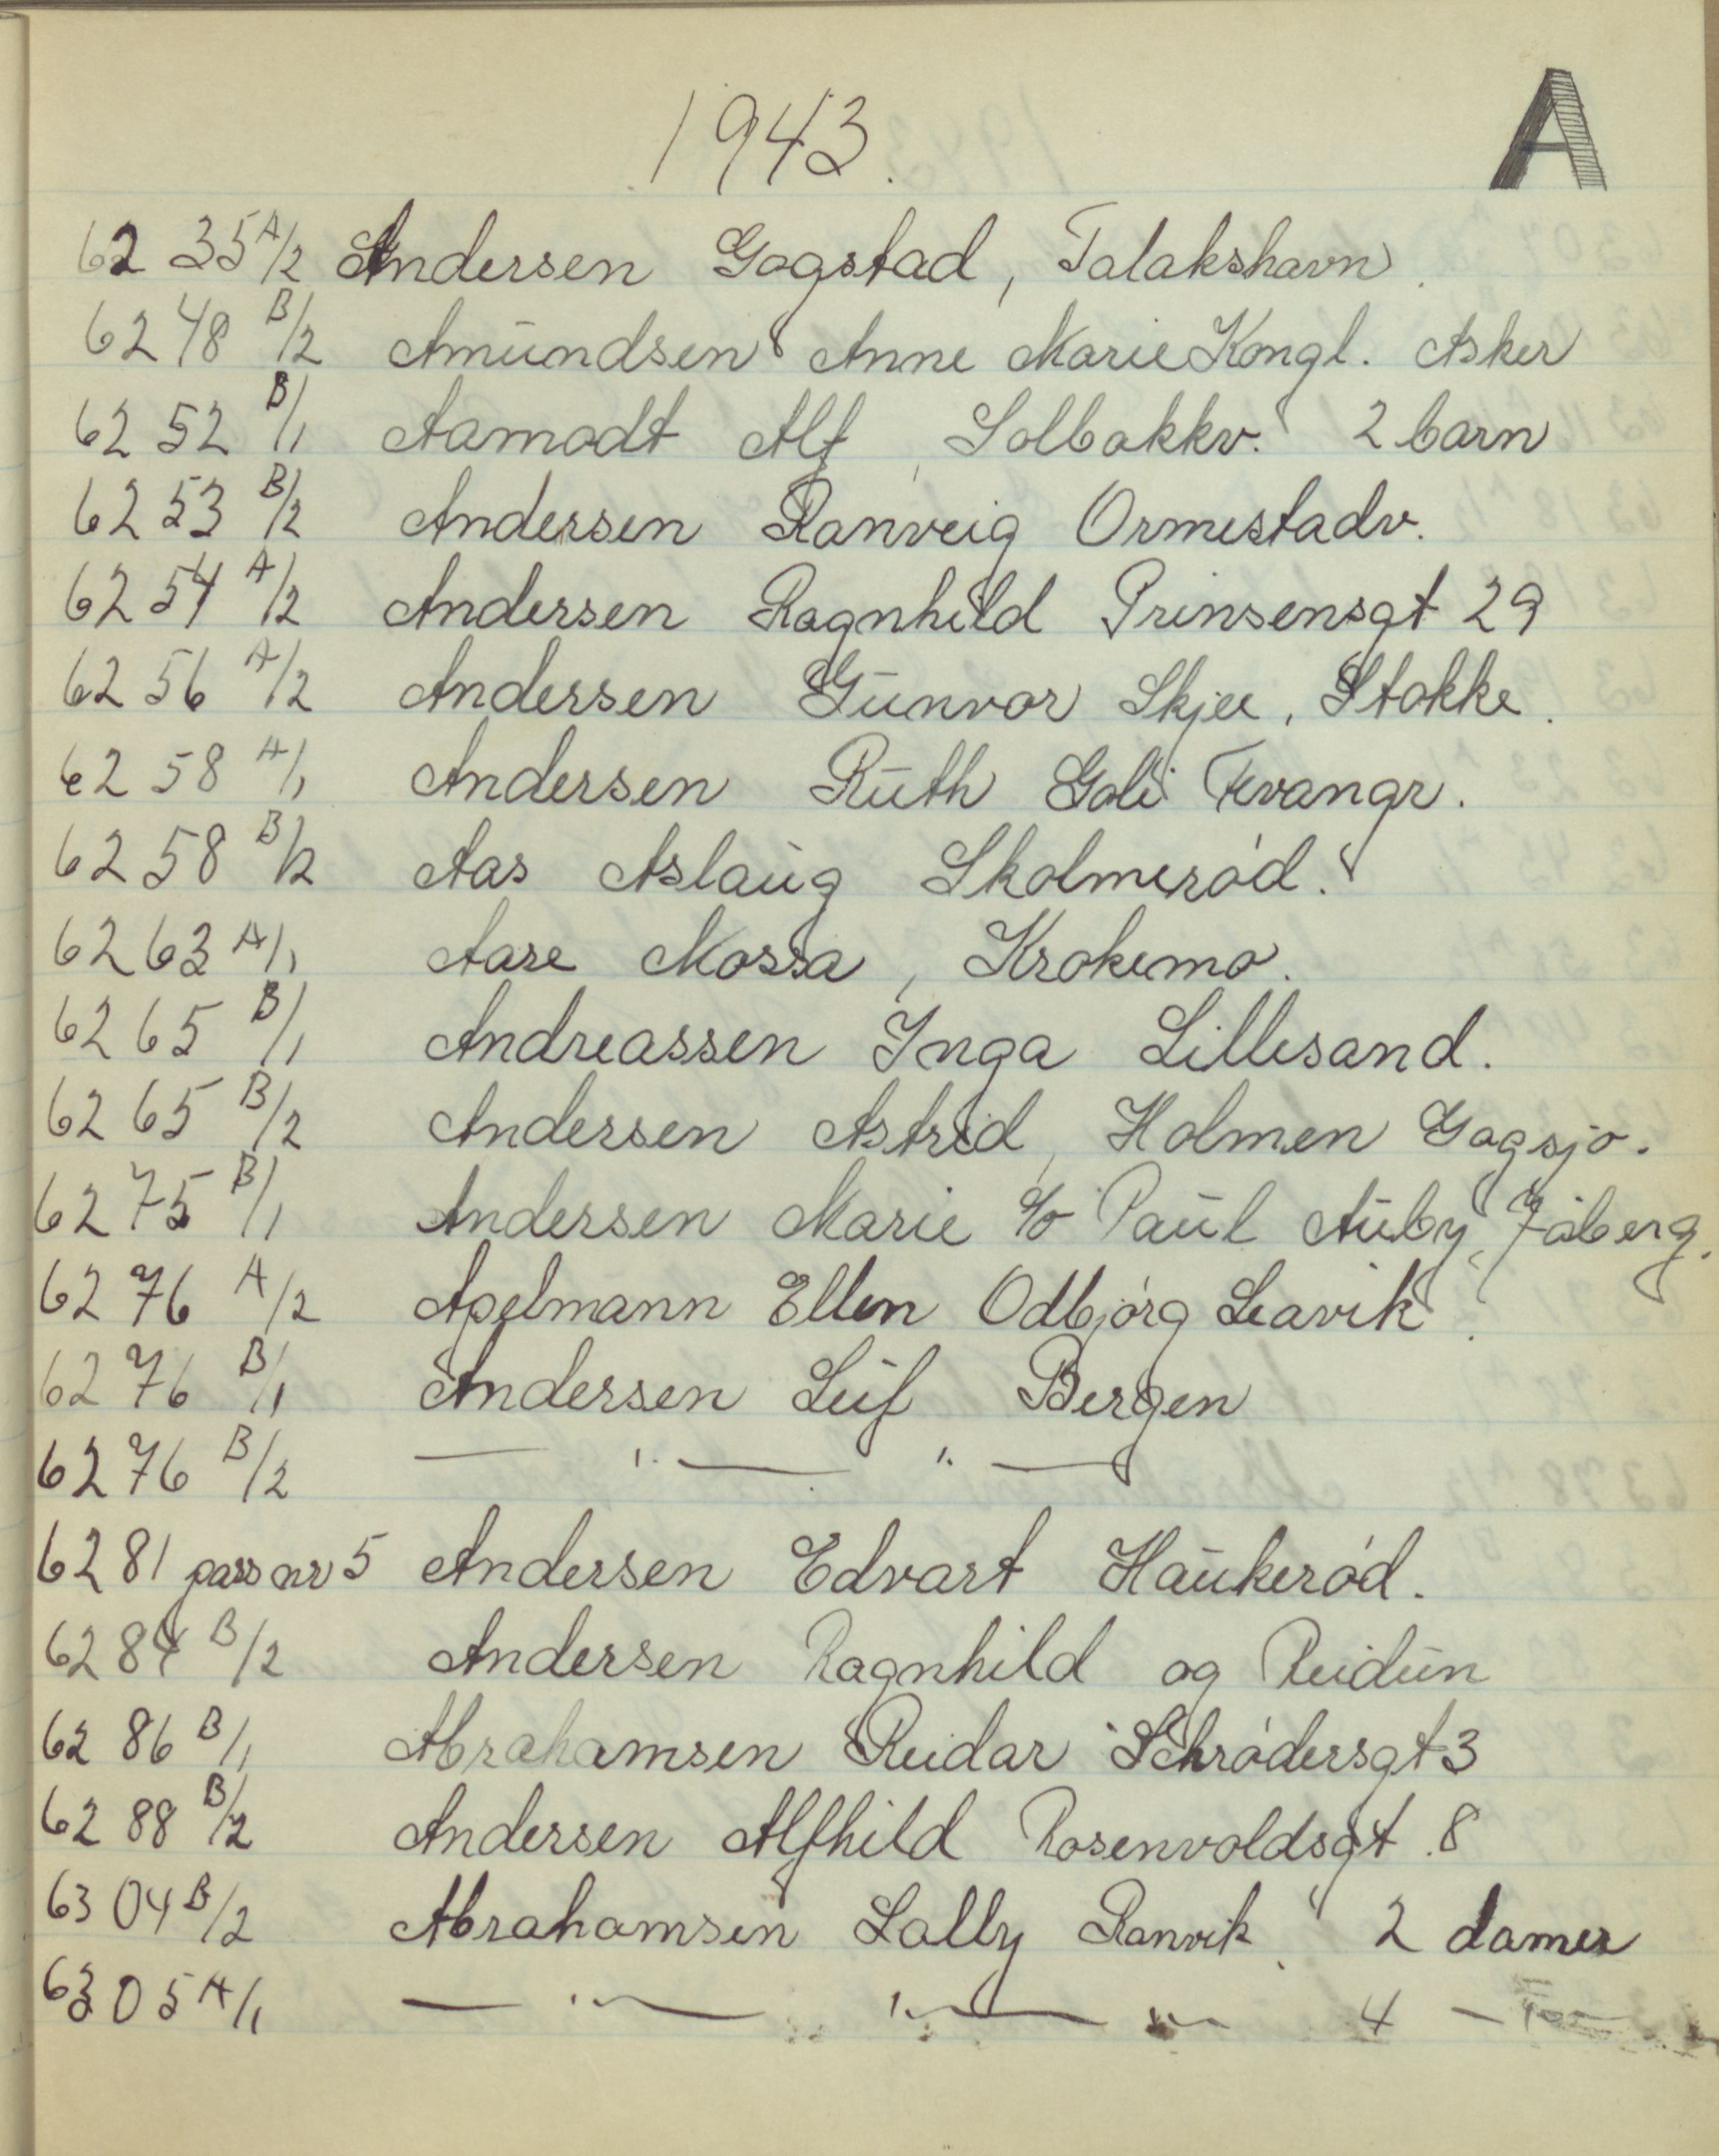 1943.
A
6235 A/2 Andersen Gogstad, Talakshavn.
6248 B/2 Amundsen Anne Marie Kongl. Asker
6252 B/1 Aamodt Alf, Solbakkv. 2 barn
6253 B/2 Andersen Ranveig Ormestadv.
6254 A/2 Andersen Ragnhild Prinsensgt 29
6256 A/2 Andersen Gunvor Skjee, Stokke.
6258 A/1 Andersen Ruth Goli Tevangr.
6258 B/2 Aas Aslaug Skolmerød.
6263 A/1 Aase Mossa, Krokemo.
6265 B/1 Andreassen Inga Lillesand.
6265 B/2 Andersen Astrid, Holmen Gogsjø.
6275 B/1 Andersen Marie c/o Paul Auby, Jåberg.
6276 A/2 Apelmann Ellen Odbjørg Leavik.
6276 B/1 Andersen Leif Bergen
6276 B/2 — " — " —
6281 pass nr 5 Andersen Edvart Haukerød.
6284 B/2 Andersen Ragnhild og Reidun
6286 B/1 Abrahamsen Reidar Schrødersgt 3
6288 B/2 Andersen Alfhild Rosenvoldsgt. 8
6304 B/2 Abrahamsen Lally Ranvik. 2 damer
6305 A/1 — " — " — " — 4 —